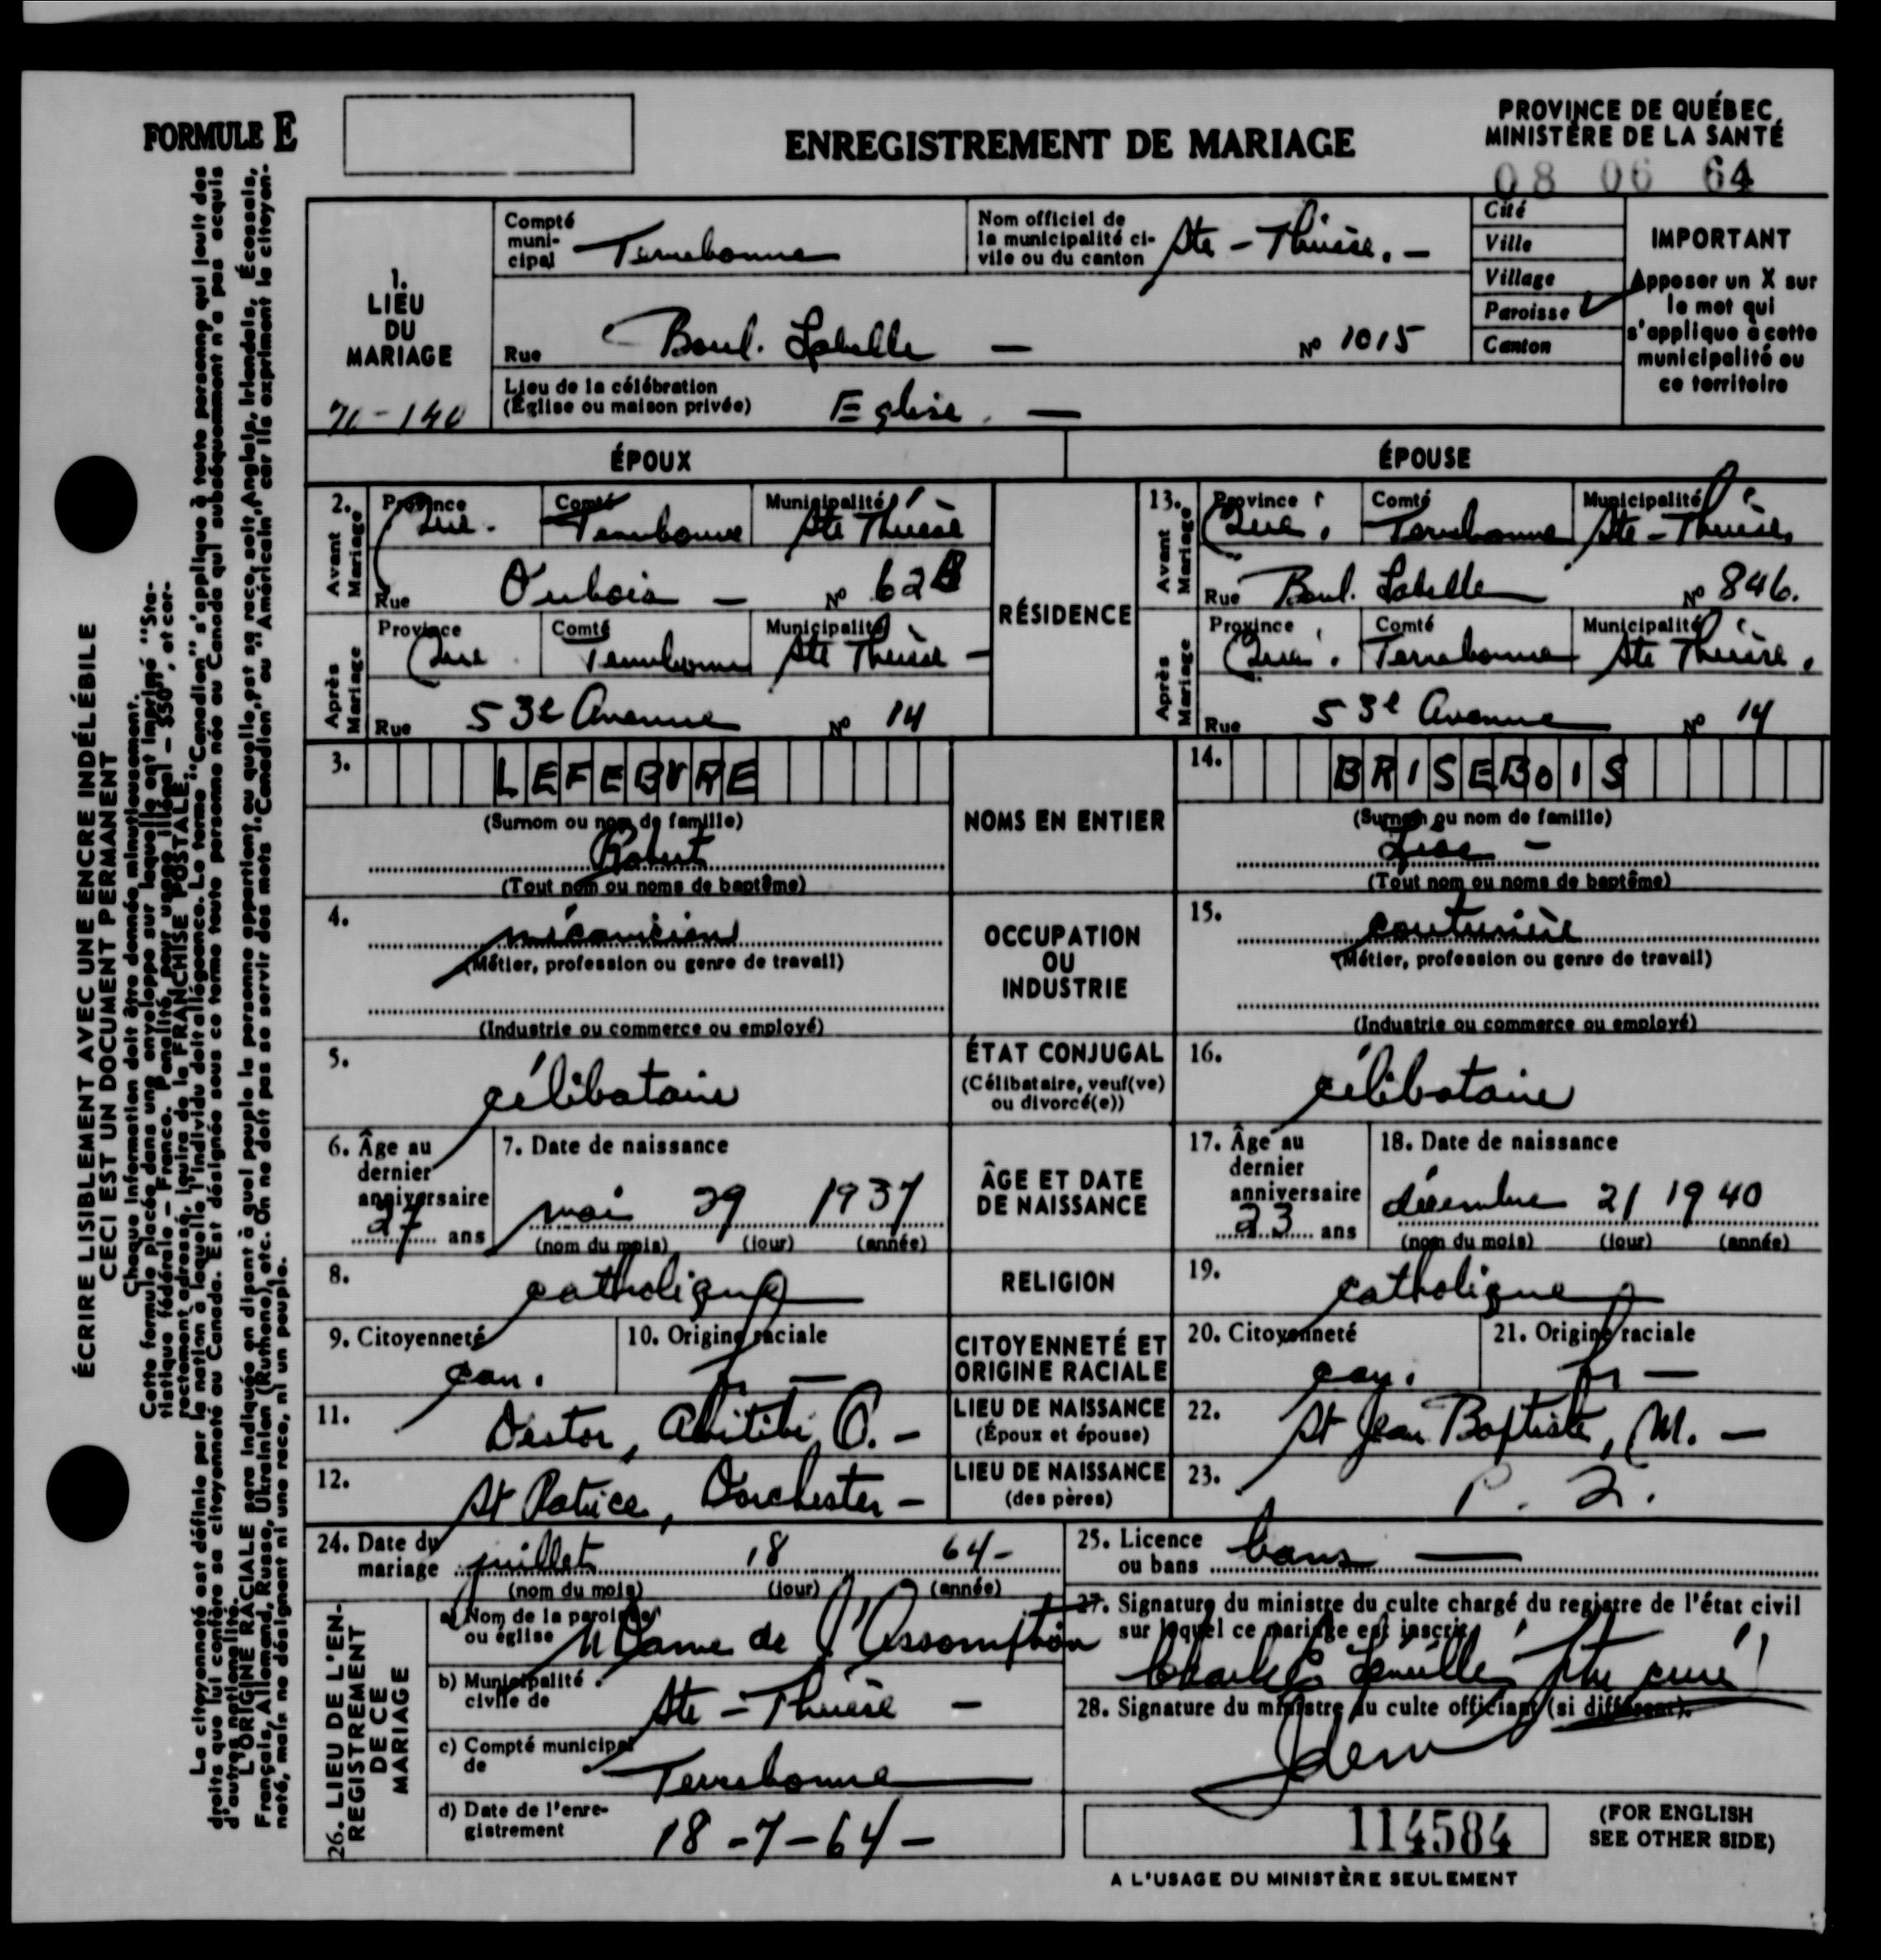 FORMULE E
ENREGISTREMENT DE MARIAGE
PROVINCE DE QUÉBEC
MINISTÈRE DE LA SANTÉ
08 06 64
1.
LIEU
DU
MARIAGE
71-140
Compté
muni-
cipal Terrebonne
Nom officiel de
la municipalité ci-
vile ou du canton Ste-Thérèse. -
Cité
Ville
Village
Paroisse ✓
Canton
IMPORTANT
Apposer un X sur
le mot qui
s'applique à cette
municipalité ou
ce territoire
Rue Boul. Labelle - No 1015
Lieu de la célébration
(Église ou maison privée) Eglise. -
ÉPOUX
ÉPOUSE
2. Avant Mariage
Province Qué. Comté Terrebonne Municipalité Ste Thérèse
Rue Dubois - No 62B
Après Mariage
Province Qué Comté Terrebonne Municipalité Ste Thérèse -
Rue 53e Avenue No 14
RÉSIDENCE
13. Avant Mariage
Province Qué. Comté Terrebonne Municipalité Ste-Thérèse.
Rue Boul. Labelle No 846.
Après Mariage
Province Qué. Comté Terrebonne Municipalité Ste Thérèse.
Rue 53e Avenue No 14
3. LEFEBVRE
(Surnom ou nom de famille)
Robert
(Tout nom ou noms de baptême)
NOMS EN ENTIER
14. BRISEBOIS
(Surnom ou nom de famille)
Lise -
(Tout nom ou noms de baptême)
4. mécanicien
(Métier, profession ou genre de travail)
(Industrie ou commerce ou employé)
OCCUPATION
OU
INDUSTRIE
15. couturière
(Métier, profession ou genre de travail)
(Industrie ou commerce ou employé)
5. célibataire
ÉTAT CONJUGAL
(Célibataire, veuf(ve)
ou divorcé(e))
16. célibataire
6. Âge au
dernier
anniversaire
27 ans
7. Date de naissance
mai 29 1937
(nom du mois) (jour) (année)
ÂGE ET DATE
DE NAISSANCE
17. Âge au
dernier
anniversaire
23 ans
18. Date de naissance
décembre 21 1940
(nom du mois) (jour) (année)
8. catholique
RELIGION
19. catholique
9. Citoyenneté
can.
10. Origine raciale
fr -
CITOYENNETÉ ET
ORIGINE RACIALE
20. Citoyenneté
can.
21. Origine raciale
fr -
11. Destor, Abitibi, O. -
LIEU DE NAISSANCE
(Époux et épouse)
22. St Jean Baptiste, M. -
12. St Patrice, Dorchester -
LIEU DE NAISSANCE
(des pères)
23. P. Q.
24. Date du
mariage juillet 18 64-
(nom du mois) (jour) (année)
25. Licence
ou bans bans -
26. LIEU DE L'EN-
REGISTREMENT
DE CE
MARIAGE
a) Nom de la paroisse
ou église N Dame de l'Assomption
b) Municipalité
civile de Ste-Thérèse -
c) Compté municipal
de Terrebonne
d) Date de l'enre-
gistrement 18-7-64-
27. Signature du ministre du culte chargé du registre de l'état civil
sur lequel ce mariage est inscrit
Charles ptre curé
28. Signature du ministre du culte officiant (si différent).
Idem
114584
(FOR ENGLISH
SEE OTHER SIDE)
A L'USAGE DU MINISTÈRE SEULEMENT
ÉCRIRE LISIBLEMENT AVEC UNE ENCRE INDÉLÉBILE
CECI EST UN DOCUMENT PERMANENT
Chaque information doit être donnée minutieusement.
Cette formule placée dans une enveloppe sur laquelle est imprimé "Sta-
tistique fédérale - Franco. Pénalité pour usage illégal - $50", et cor-
rectement adressé, jouira de la FRANCHISE POSTALE.
La citoyenneté est définie par la nation à laquelle l'individu doit allégeance. Le terme "Canadien" s'applique à toute personne qui jouit des
droits que lui confère sa citoyenneté au Canada. Est désignée sous ce terme toute personne née au Canada qui subséquemment n'a pas acquis
d'autres nationalité.
L'ORIGINE RACIALE sera indiquée en disant à quel peuple la personne appartient ou quelle est sa race, soit Anglais, Irlandais, Écossais,
Français, Allemand, Russe, Ukrainien (Ruthène), etc. On ne doit pas se servir des mots "Canadien" ou "Américain" car ils expriment la citoyen-
neté, mais ne désignent ni une race, ni un peuple.